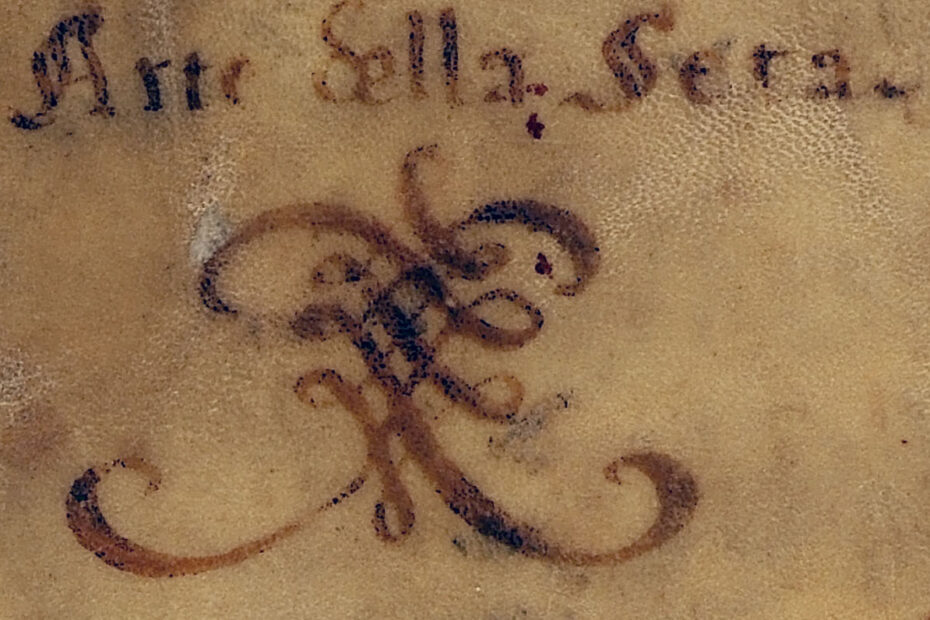 Arte della Seta